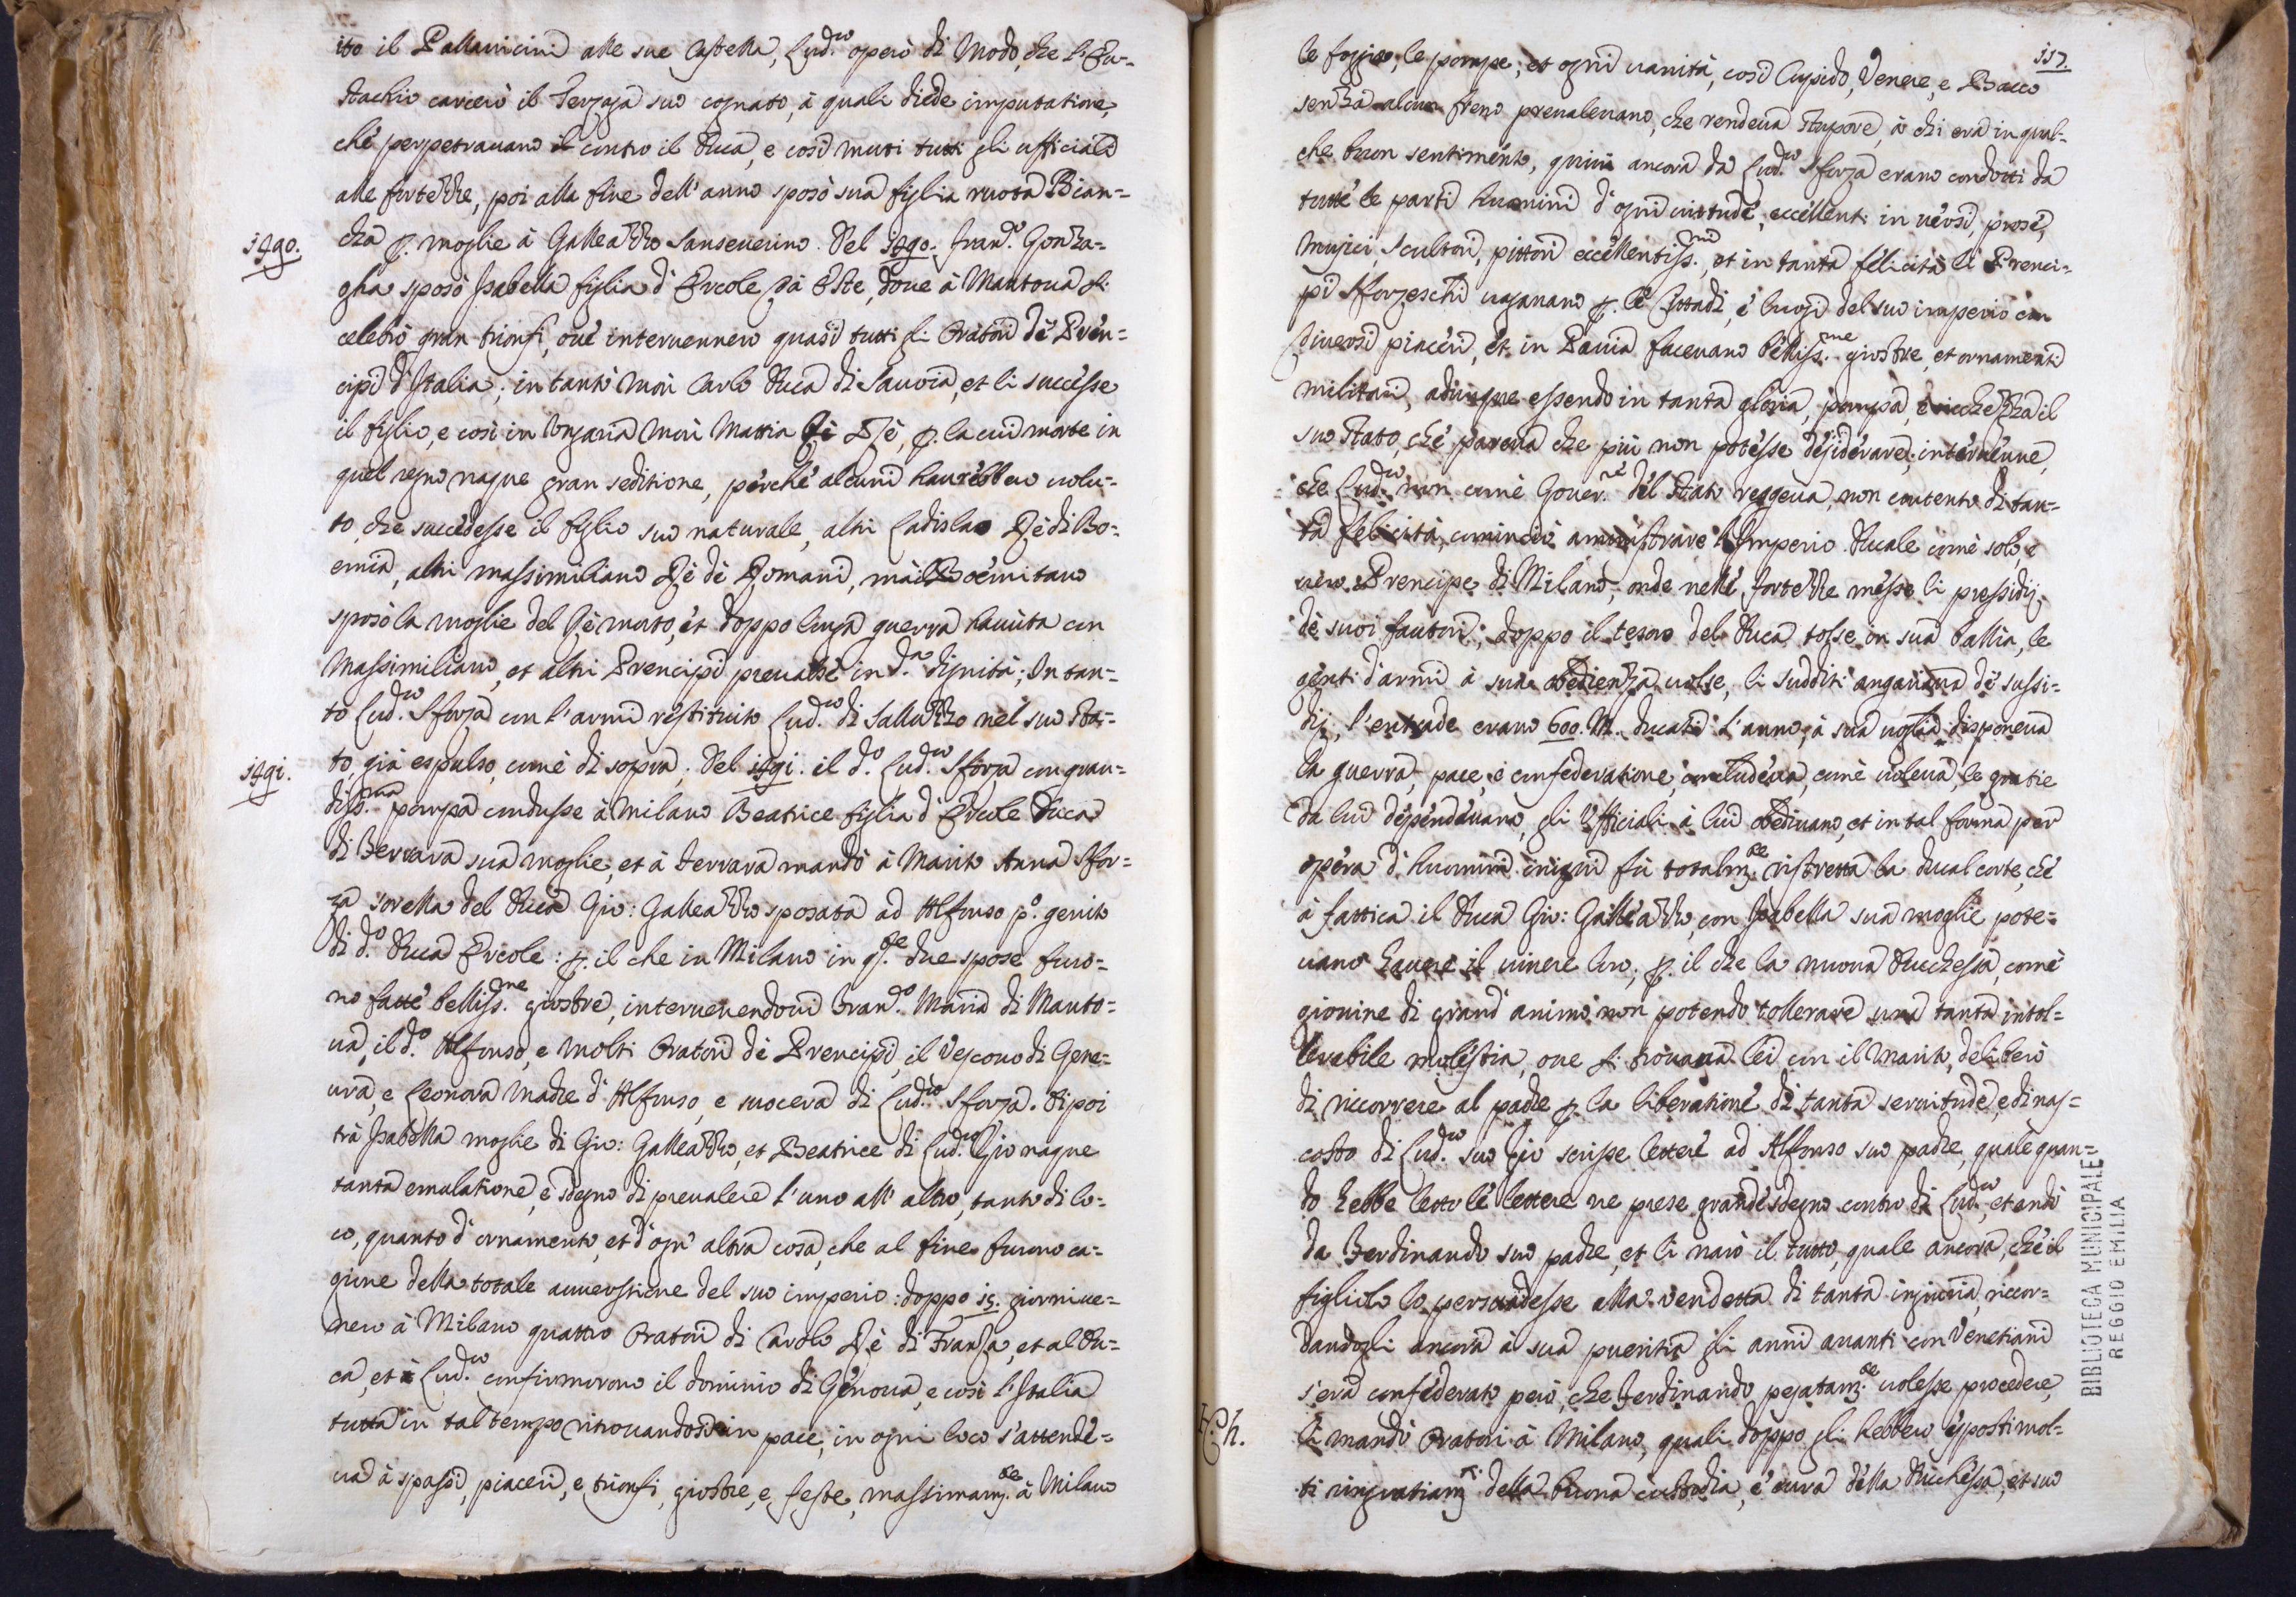 ito il Pallauicini alle sue Castella, Lud.co operò di modo, che l'Eu-
stachio carcerò il Terzaga suo cognato, à quali diede imputatione,
che perpetrauano il contro il Duca, e così mutò tutti gli ufficiali
alle fortezze, poi alla fine dell'anno sposò sua figlia nuota Bian-
1490.
cha p. moglie à Galleazzo Sanseuerino. Del 1490. Fran.o Gonza-
gha sposò Isabella figlia d'Ercole da Este, doue à Mantoua si
celebrò gran trionfi, oue interuennero quasi tutti gli Oratori de Pren-
cipi d'Italia; in tanto morì Carlo Duca di Sauoia, et li successe
il figlio, e così in Ongaria morì Mattia Rè, p. la cui morte in
quel regno naque gran seditione, perche alcuni haurebbero uolu-
to, che succedesse il figlio suo naturale, altri Ladislao Rè di Bo-
emia, altri massimiliano Rè de Romani, mà il Boemitano
sposò la moglie del Rè morto, et doppo longa guerra hauuta con
Massimiliano, et altri Prencipi preualse in d.a dignità; In tan-
to Lud.co Sforza con l'armi restituito Lud.co di Salluzzo nel suo sta-
1491.
to, già espulso, come di sopra. Del 1491. il d.o Lud.co Sforza con gran-
diss.ma pompa condusse à Milano Beatrice figlia d'Ercole Duca
di Ferrara sua moglie, et à Ferrara mandò à Marito Anna Sfor-
za sorella del Duca Gio: Galleazzo sposata ad Alfonso p.o genito
di d.o Duca Ercole: p. il che in Milano in q.ste due spose furo-
no fatte belliss.me giostre, interuenendoui Fran.o Maria di Manto-
ua, il d.o Alfonso, e molti Oratori de Prencipi, il Vescouo di Gene-
ura, e Leonora Madre d'Alfonso, e suocera di Lud.co Sforza. Di poi
trà Isabella moglie di Gio: Galleazzo, et Beatrice di Lud.co Zio naque
tanta emulatione, e sdegno di preualere l'uno all'altro, tanto di lo-
co, quanto d'ornamento, et d'ogn'altra cosa, che al fine furono ca-
gione della totale auuersione del suo imperio: doppo 15. giorni ue-
nero à Milano quattro Oratori di Carlo Rè di Franza, et al Du-
ca, et à Lud.co confirmorono il dominio di Genoua, e così l'Italia
tutta in tal tempo ritrouandosi in pace, in ogni loco s'attende-
ua à spassi, piaceri, e trionfi, giostre, e feste, massimam.te à Milano
117
le foggie, le pompe; et ogni uanità, così Cupido, Venere, e Bacco
senza alcun freno preualeuano, che rendeua stupore, à chi era in qual-
che buon sentimento, quiui ancora da Lud.co Sforza erano condotti da
tutte le parti huomini d'ogni uirtude, eccellenti in uersi, prose,
musici, Scultori, pittori eccellentiss.mi, et in tanta felicità li Prenci-
pi Sforzeschi uagauano p. le Cittadi, e luoghi del suo imperio con
diuersi piaceri, et in Pauia faceuano belliss.me giostre, et ornamenti
militari, adunque essendo in tanta gloria, pompa, e ricchezza il
suo stato, che pareua che più non potesse desiderare, interuenne,
che Lud.co non come Gouer.re del stato reggeua, non contento di tan-
ta felicità, cominciò aministrare l'Imperio Ducale come solo, e
uero Prencipe di Milano, onde nelle fortezze messe li pressidij
de suoi fautori; doppo il tesoro del Duca tolse in sua ballia, le
genti d'armi à sua obedienza uolse, li sudditi angariaua de sussi-
dij, l'entrade erano 600. M. ducati l'anno, à sua uoglia disponeua
la guerra, pace, e confederatione, concludeua, come uoleua, le gratie
da lui dependeuano, gli Vfficiali à lui obediuano, et in tal forma per
opera d'huomini iniqui fù totalm.te ristretta la ducal corte, che
à fattica il Duca Gio: Galleazzo, con Isabella sua moglie pote-
uano hauere il uiuere loro, p. il che la nuoua Duchessa, come
giouine di grand'animo non potendo tollerare una tanta intol-
lerabile molestia, oue si trouaua lei con il Marito, deliberò
di riccorrere al padre p. la liberatione di tanta seruitude, e di nas-
costo di Lud.co suo Zio scrisse lettere ad Alfonso suo padre, quale quan-
do hebbe letto le lettere ne prese grande sdegno contro di Lud.co, et andò
da Ferdinando suo padre, et li narò il tutto, quale ancora, che il
figliolo lo persuadesse alla vendetta di tanta ingiuria, riccor-
dandogli ancora à sua pueritia gli anni auanti con Venetiani
s'era confederato, però, che Ferdinando pesatam.te uolesse procedere,
li mandò Oratori à Milano, quali doppo gli hebbero esposti mol-
ti ringratiam.ti della buona custodia, e cura della Duchessa, et suo
BIBLIOTECA MUNICIPALE
REGGIO EMILIA